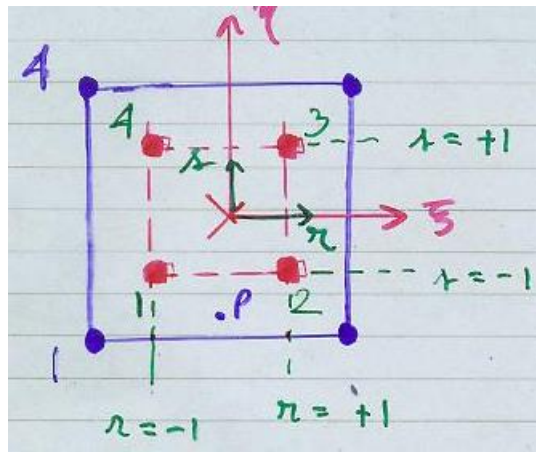 η
4
4 3 s = +1
s
r ξ
s = -1
1 .P 2
1
r = -1 r = +1